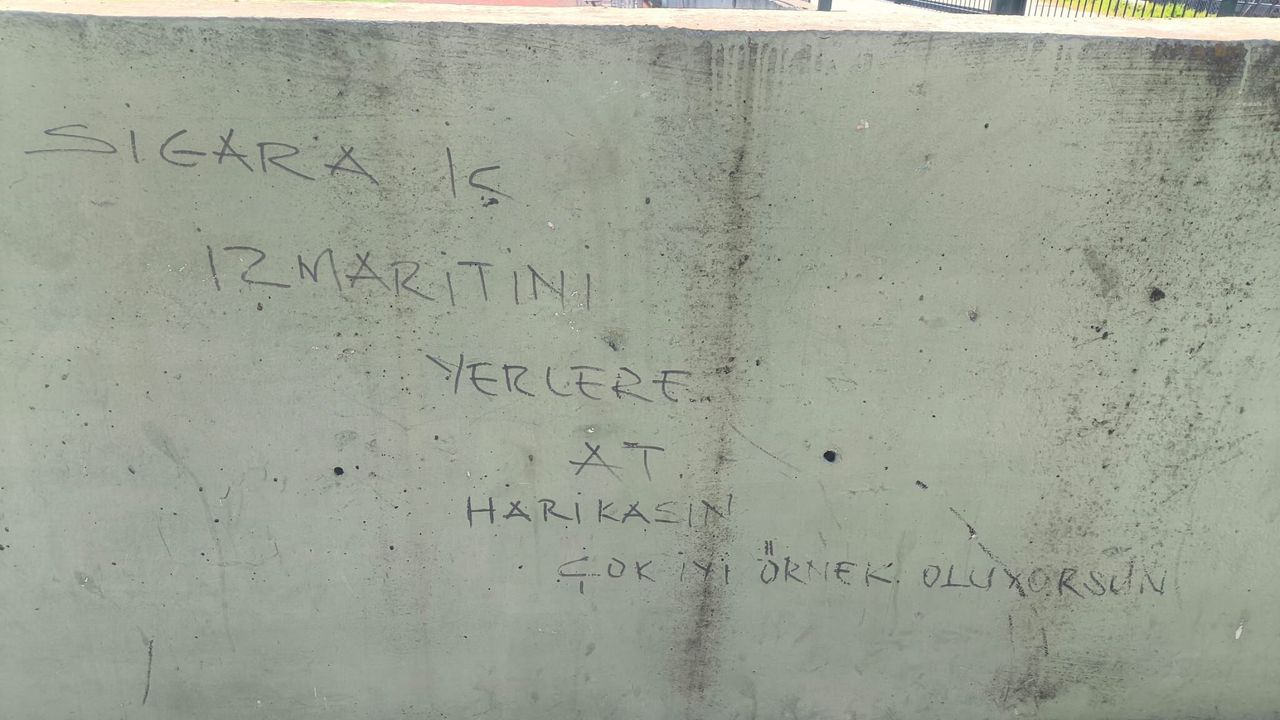 SIGARA IÇ
İZMARİTİNİ
YERLERE
AT
HARİKASIN
ÇOK İYİ ÖRNEK OLUYORSUN